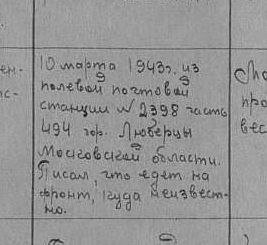 10 марта 1943г. из
ен-
полевой почтовой
с-
станции № 2398 часть
про
494 гор. Люберцы
вес
Московской области.
Писал, что едет на
фронт, куда неизвест-
но.